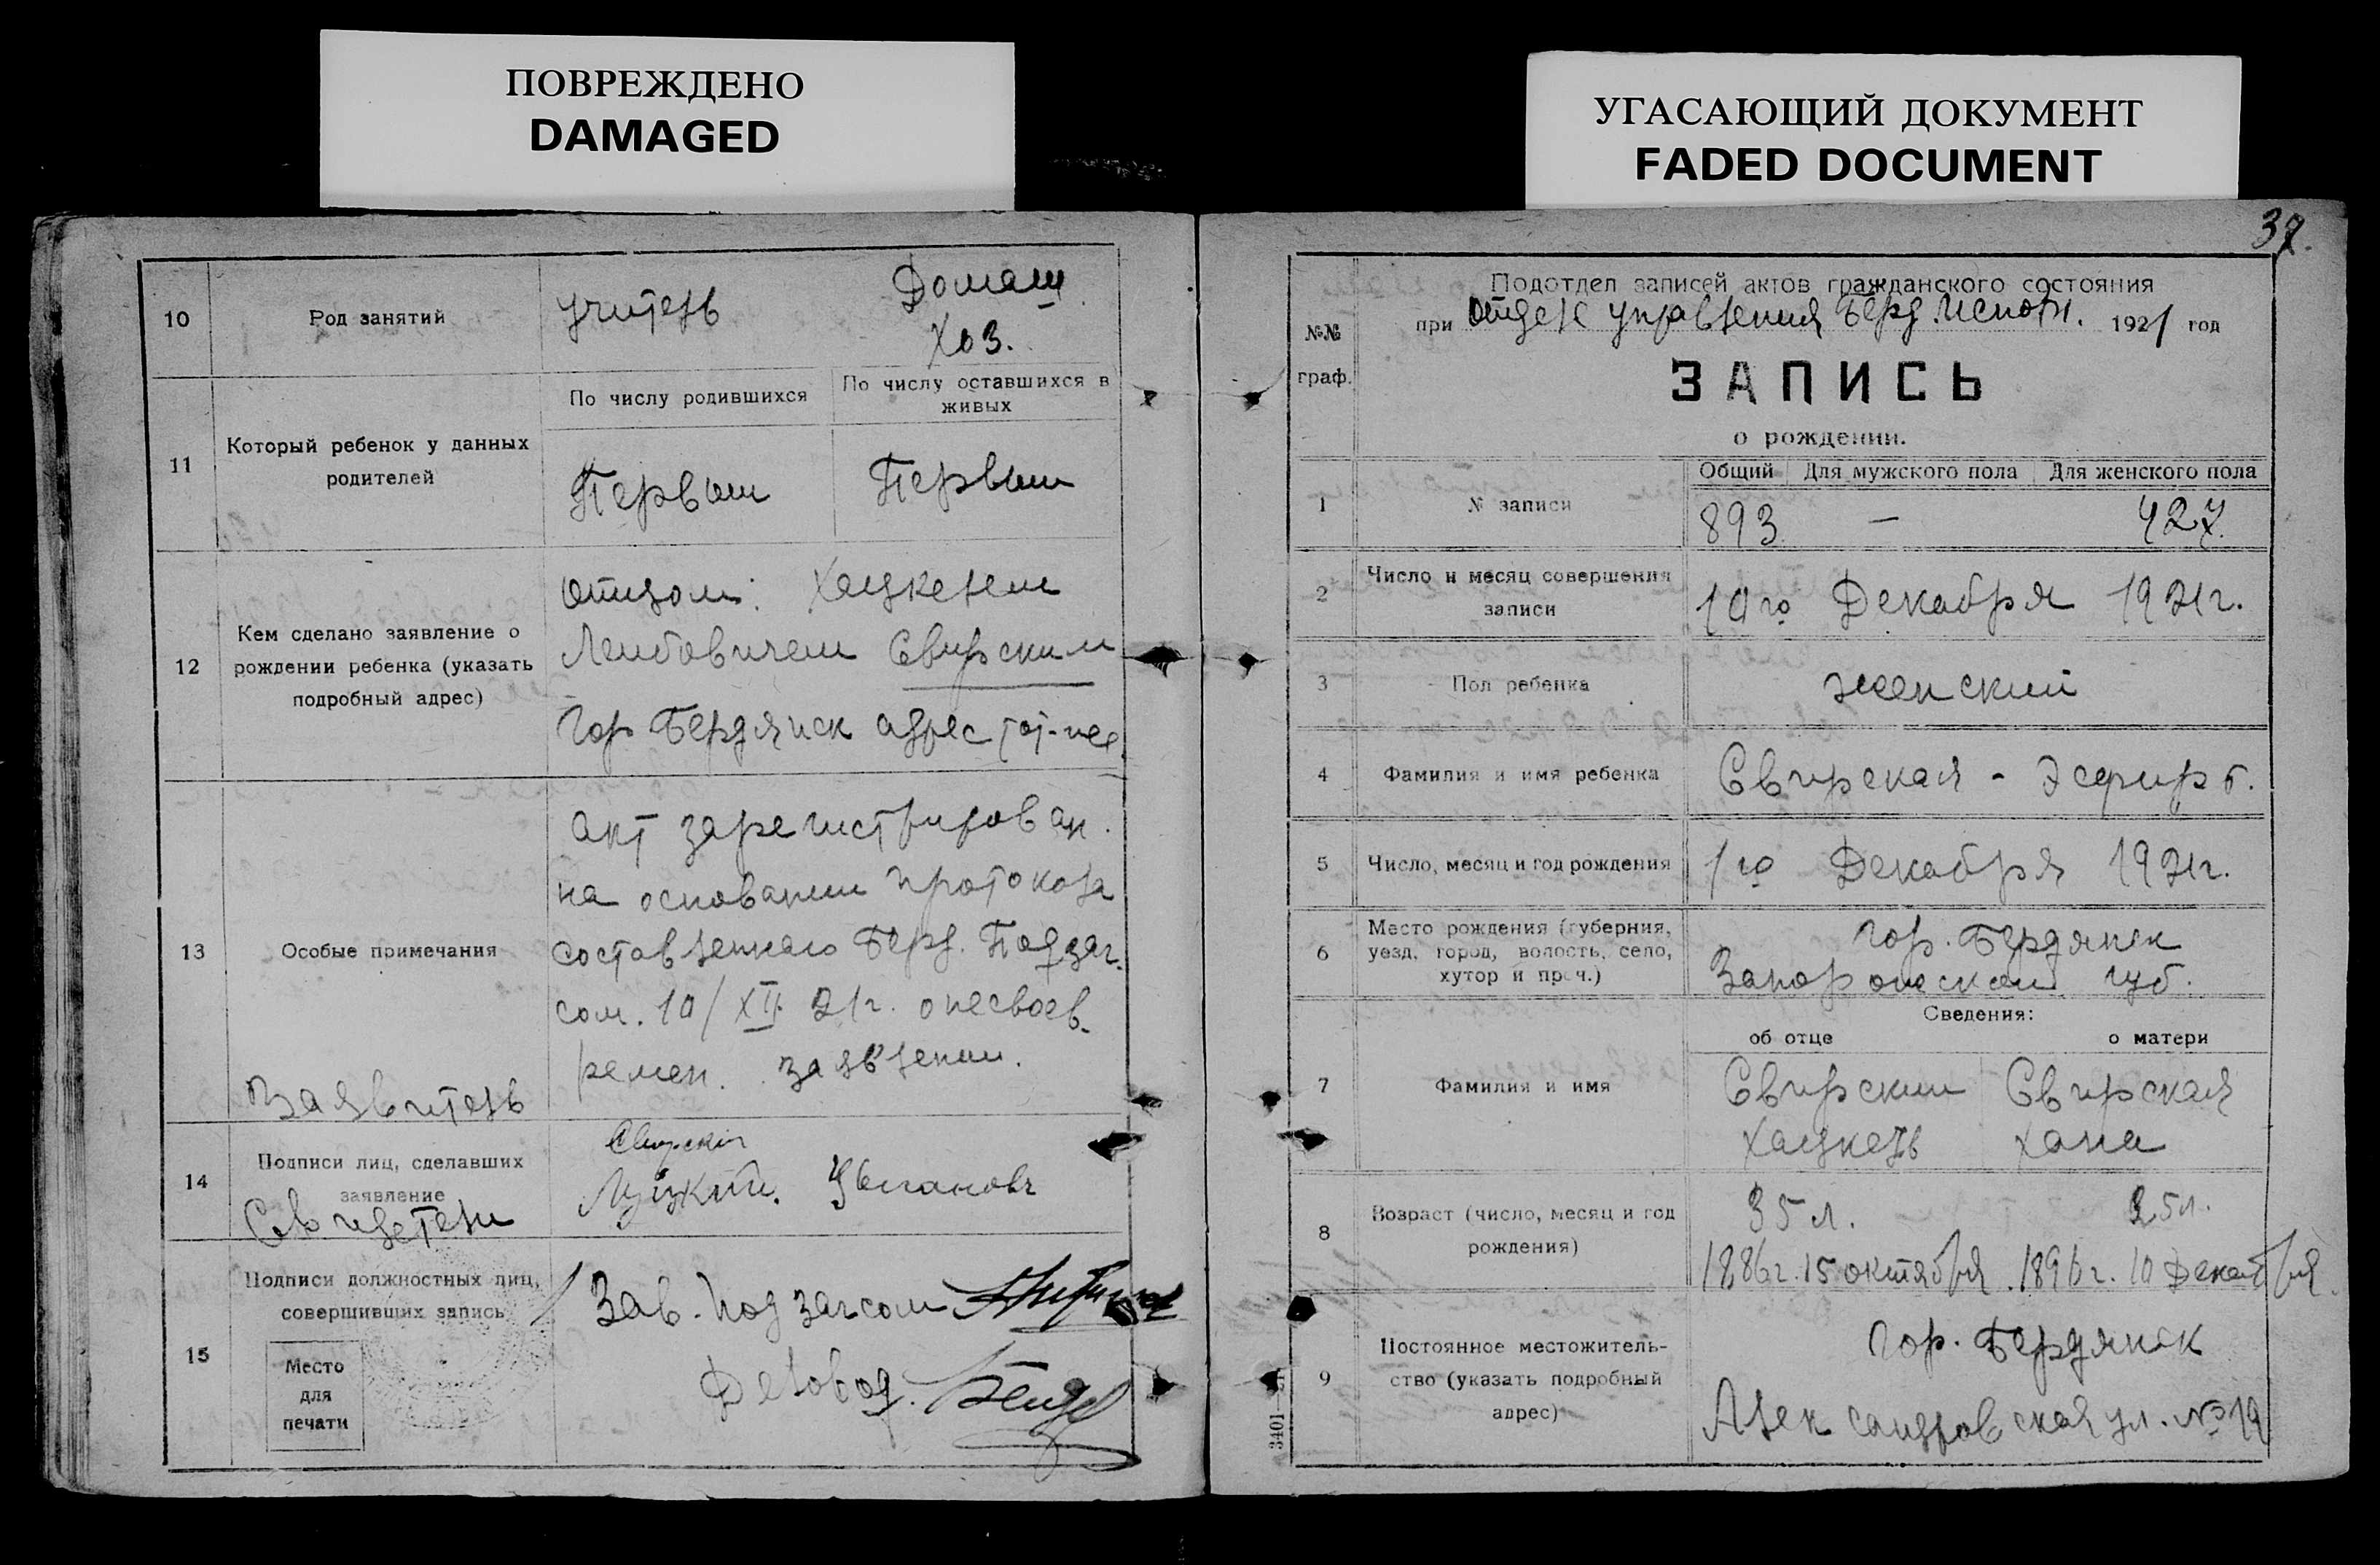 ПОВРЕЖДЕНО
DAMAGED
УГАСАЮЩИЙ ДОКУМЕНТ
FADED DOCUMENT
10
Род занятий
учитель
Домаш.
Хоз.
11
Который ребенок у данных
родителей
По числу родившихся
По числу оставшихся в
живых
Первым
Первым
12
Кем сделано заявление о
рождении ребенка (указать
подробный адрес)
отцом: Хацкелем
Лейбовичем Свирским
Гор Бердянск адрес тот-же
13
Особые примечания
акт зарегистрирован.
на основании протокола
составленнаго Берд. Подзаг.
сом. 10/XII 21г. о несвоев-
ремен. заявлении.
Заявитель
14
Подписи лиц, сделавших
заявление
Свидетели
Свирскiй
Луцкий.
15
Подписи должностных лиц,
совершивших запись
Место
для
печати
Зав. Подзагсом
Деловод.
37.
№№
граф.
Подотдел записей актов гражданского состояния
при отделе управления Берд. Исполк. 1921 год
ЗАПИСЬ
о рождении.
1
№ записи
Общий
Для мужского пола
Для женского пола
893
—
427.
2
Число и месяц совершения
записи
10го Декабря 1921г.
3
Пол ребенка
женский
4
Фамилия и имя ребенка
Свирская - Эсфирь.
5
Число, месяц и год рождения
1го Декабря 1921г.
6
Место рождения (губерния,
уезд, город, волость, село,
хутор и проч.)
гор. Бердянск
Запорожской губ.
7
Фамилия и имя
Сведения:
об отце
о матери
Свирский
Хацкель
Свирская
Хана
8
Возраст (число, месяц и год
рождения)
35 л.
25л.
1886г. 15 октября.
1896г. 10 Декабря.
9
Постоянное местожитель-
ство (указать подробный
адрес)
Гор. Бердянск
Александровская ул. №19
3401